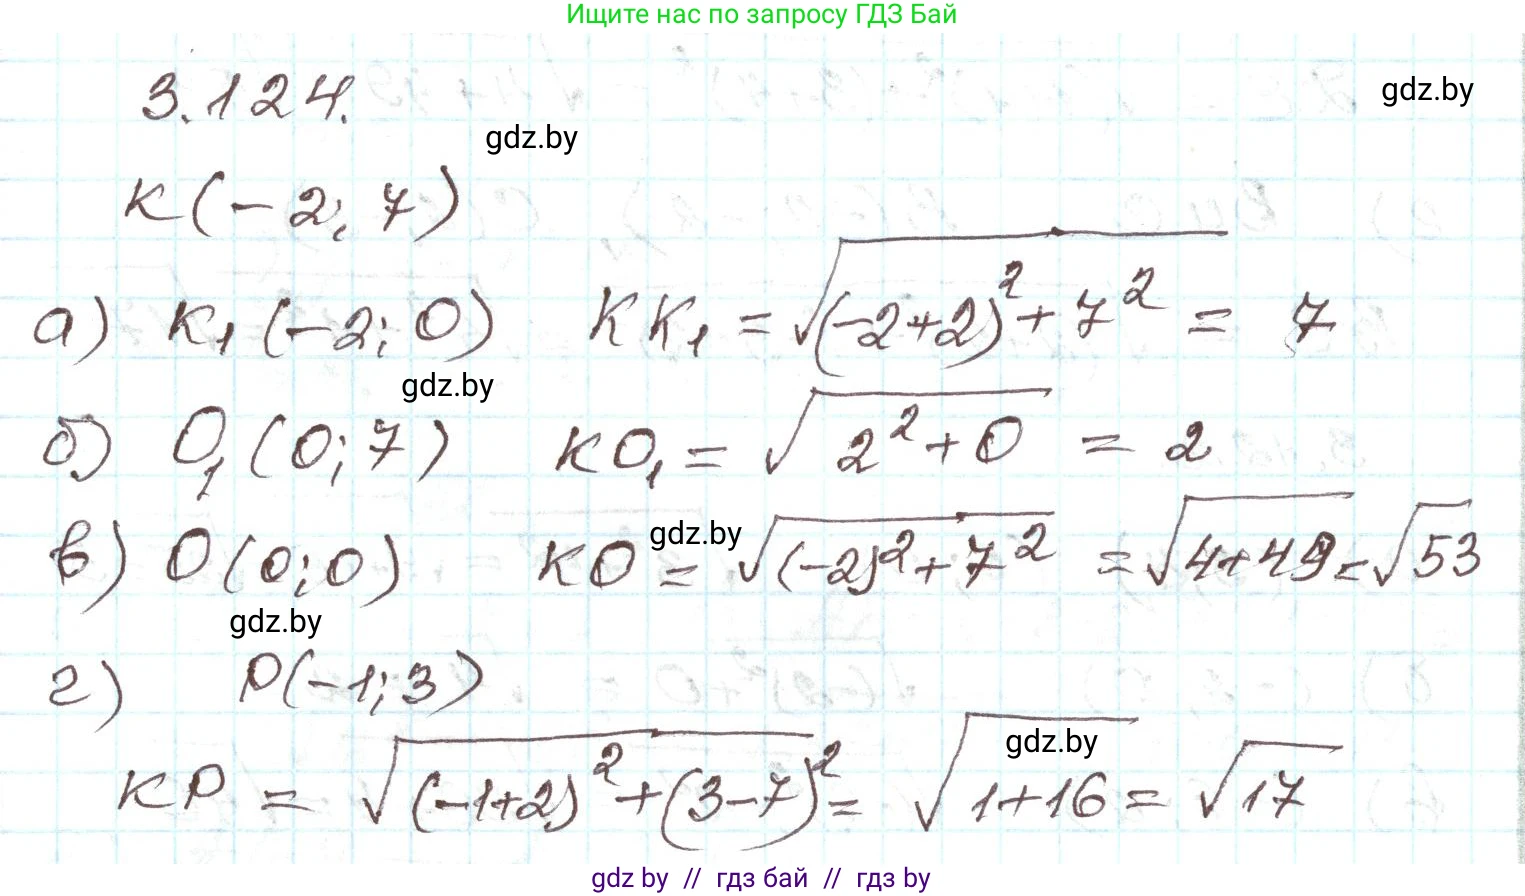 Ищите нас по запросу ГДЗ Бай
3.124.
gdz.by
gdz.by
K(-2; 7)
а) K₁(-2; 0) KK₁ = √((-2+2)² + 7²) = 7
gdz.by
б) O₁(0; 7) KO₁ = √(2² + 0) = 2
в) O(0; 0) KO = √((-2)² + 7²) = √(4+49) = √53
gdz.by
gdz.by
г) P(-1; 3)
KP = √((-1+2)² + (3-7)²) = √(1+16) = √17
gdz.by
gdz by // гдз бай // гдз by